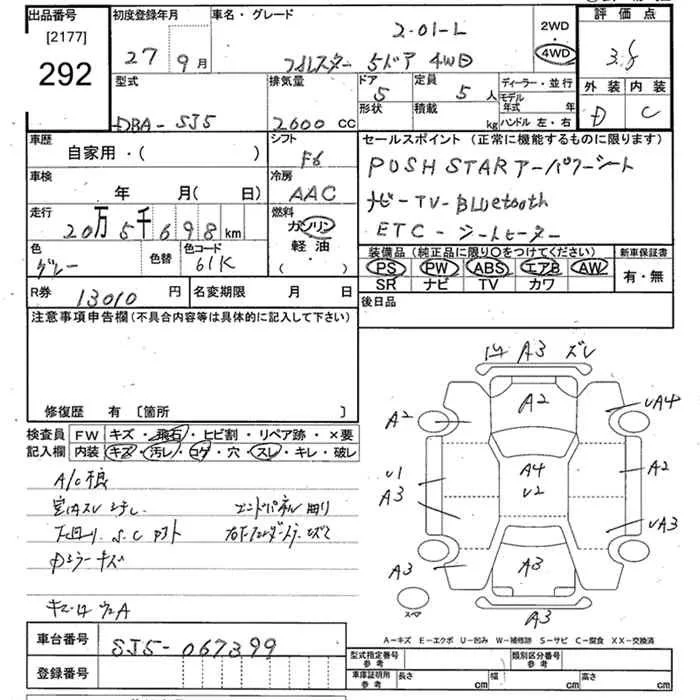 出品番号
[2177]
292
初度登録年月
27年9月
車名・グレード
2.0i-L
フォレスター 5ドア 4WD
2WD
4WD
評価点
3.5
外装 内装
D C
型式
DBA-SJ5
排気量
2000 CC
ドア
5
形状
定員
5人
積載
kg
ディーラー・並行
モデル年式 年
ハンドル 左・右
車歴
自家用・( )
シフト
F6
車検
年 月( 日)
冷房
AAC
走行
20万5千698km
燃料
ガソリン
軽油
・( )
色
グレー
色替
色コード
61K
R券 13010円
名変期限 月 日
セールスポイント(正常に機能するものに限ります)
PUSH STARアーパワーシート
ナビ-TV-Bluetooth
ETC-シートヒーター
装備品(純正品に限り○をつけてください)
PS PW ABS エアB AW
SR ナビ TV カワ
新車保証書
有・無
後日品
注意事項申告欄(不具合内容等は具体的に記入して下さい)
修復歴 有 〔箇所 〕
検査員記入欄
FW キズ・飛石・ヒビ割・リペア跡・×要
内装 キズ・汚レ・コゲ・穴・スレ・キレ・破レ
A/C不良
室内スレ
エンドパネル曲り
下回り S.C
Dミラーキズ
A3 ズレ
A2
A2
UA4
U1
A3
A4
U2
A2
UA3
A3
A3
A3
スペア
A-キズ E-エクボ U-凹み W-補修跡 S-サビ C-腐食 XX-交換済
車台番号
SJ5-067399
登録番号
型式指定番号 参考
類別区分番号 参考
車庫証明用 参考
長さ cm 幅 cm 高さ cm